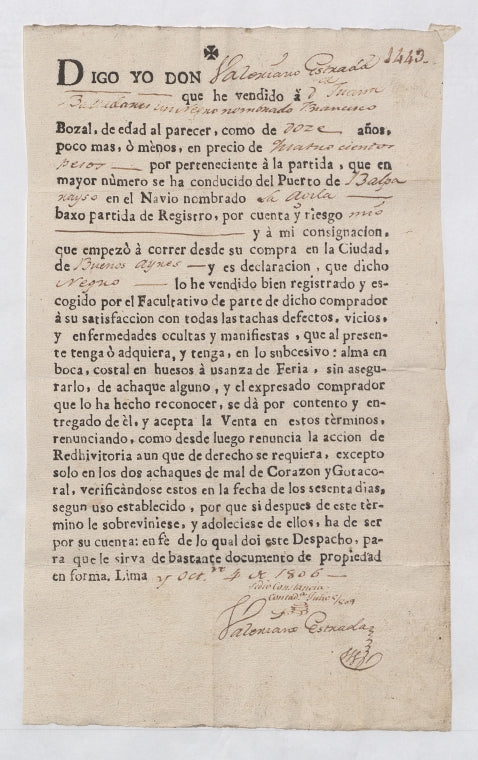 ✠
1443.
DIGO YO DON Valeriano Estrada
que he vendido à d.ª Juana
un Negro nombrado Francisco
Bozal, de edad al parecer, como de doze años,
poco mas, ò mènos, en precio de quatrocientos
pesos por perteneciente à la partida, que en
mayor nùmero se ha conducido del Puerto de Balpa
rayso en el Navio nombrado el Avila
baxo partida de Registro, por cuenta y riesgo mio
y à mi consignacion,
que empezò à correr desde su compra en la Ciudad,
de Buenos Ayres y es declaracion, que dicho
Negro lo he vendido bien registrado y es-
cogido por el Facultativo de parte de dicho comprador
à su satisfaccion con todas las tachas defectos, vicios,
y enfermedades ocultas y manifiestas, que al presen-
te tenga ò adquiera, y tenga, en lo subcesivo: alma en
boca, costal en huesos à usanza de Feria, sin asegu-
rarlo, de achaque alguno, y el expresado comprador
que lo ha hecho reconocer, se dà por contento y en-
tregado de èl, y acepta la Venta en estos tèrminos,
renunciando, como desde luego renuncia la accion de
Redhivitoria aun que de derecho se requiera, excepto
solo en los dos achaques de mal de Corazon y Gotaco-
ral, verificàndose estos en la fecha de los sesenta dias,
segun uso establecido, por que si despues de este tèr-
mino le sobreviniese, y adoleciese de ellos, ha de ser
por su cuenta: en fè de lo qual doi este Despacho, pa-
ra que le sirva de bastante documento de propiedad
en forma. Lima y Oct.re 4 de 1806
Pidio Constancia
Valeriano Estrada